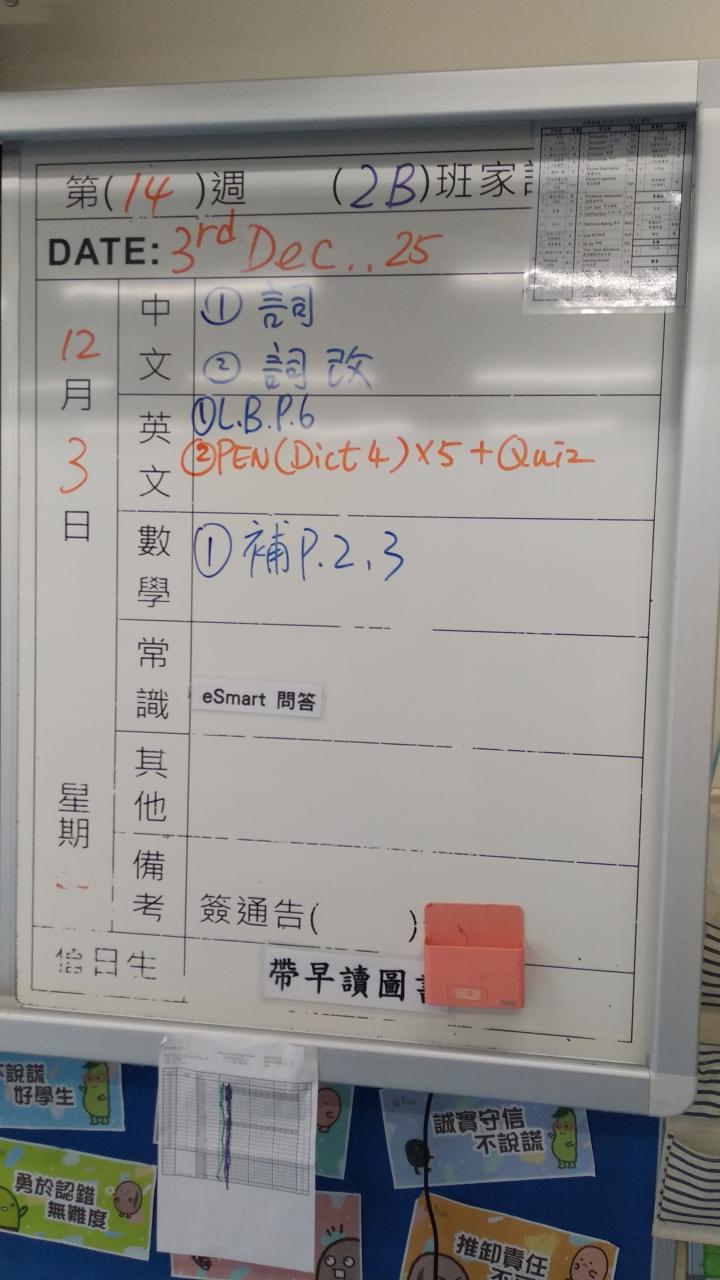 第(14)週 (2B)班家
DATE: 3rd Dec..25
12月3日
星期
中文
① 詞
② 詞改
英文
①L.B.P.6
②PEN(Dict 4)×5+Quiz
數學
① 補P.2、3
常識
eSmart 問答
其他
備考
簽通告( )
值日生
帶早讀圖
說謊
好學生
誠實守信
不說謊
勇於認錯
無難度
推卸責任